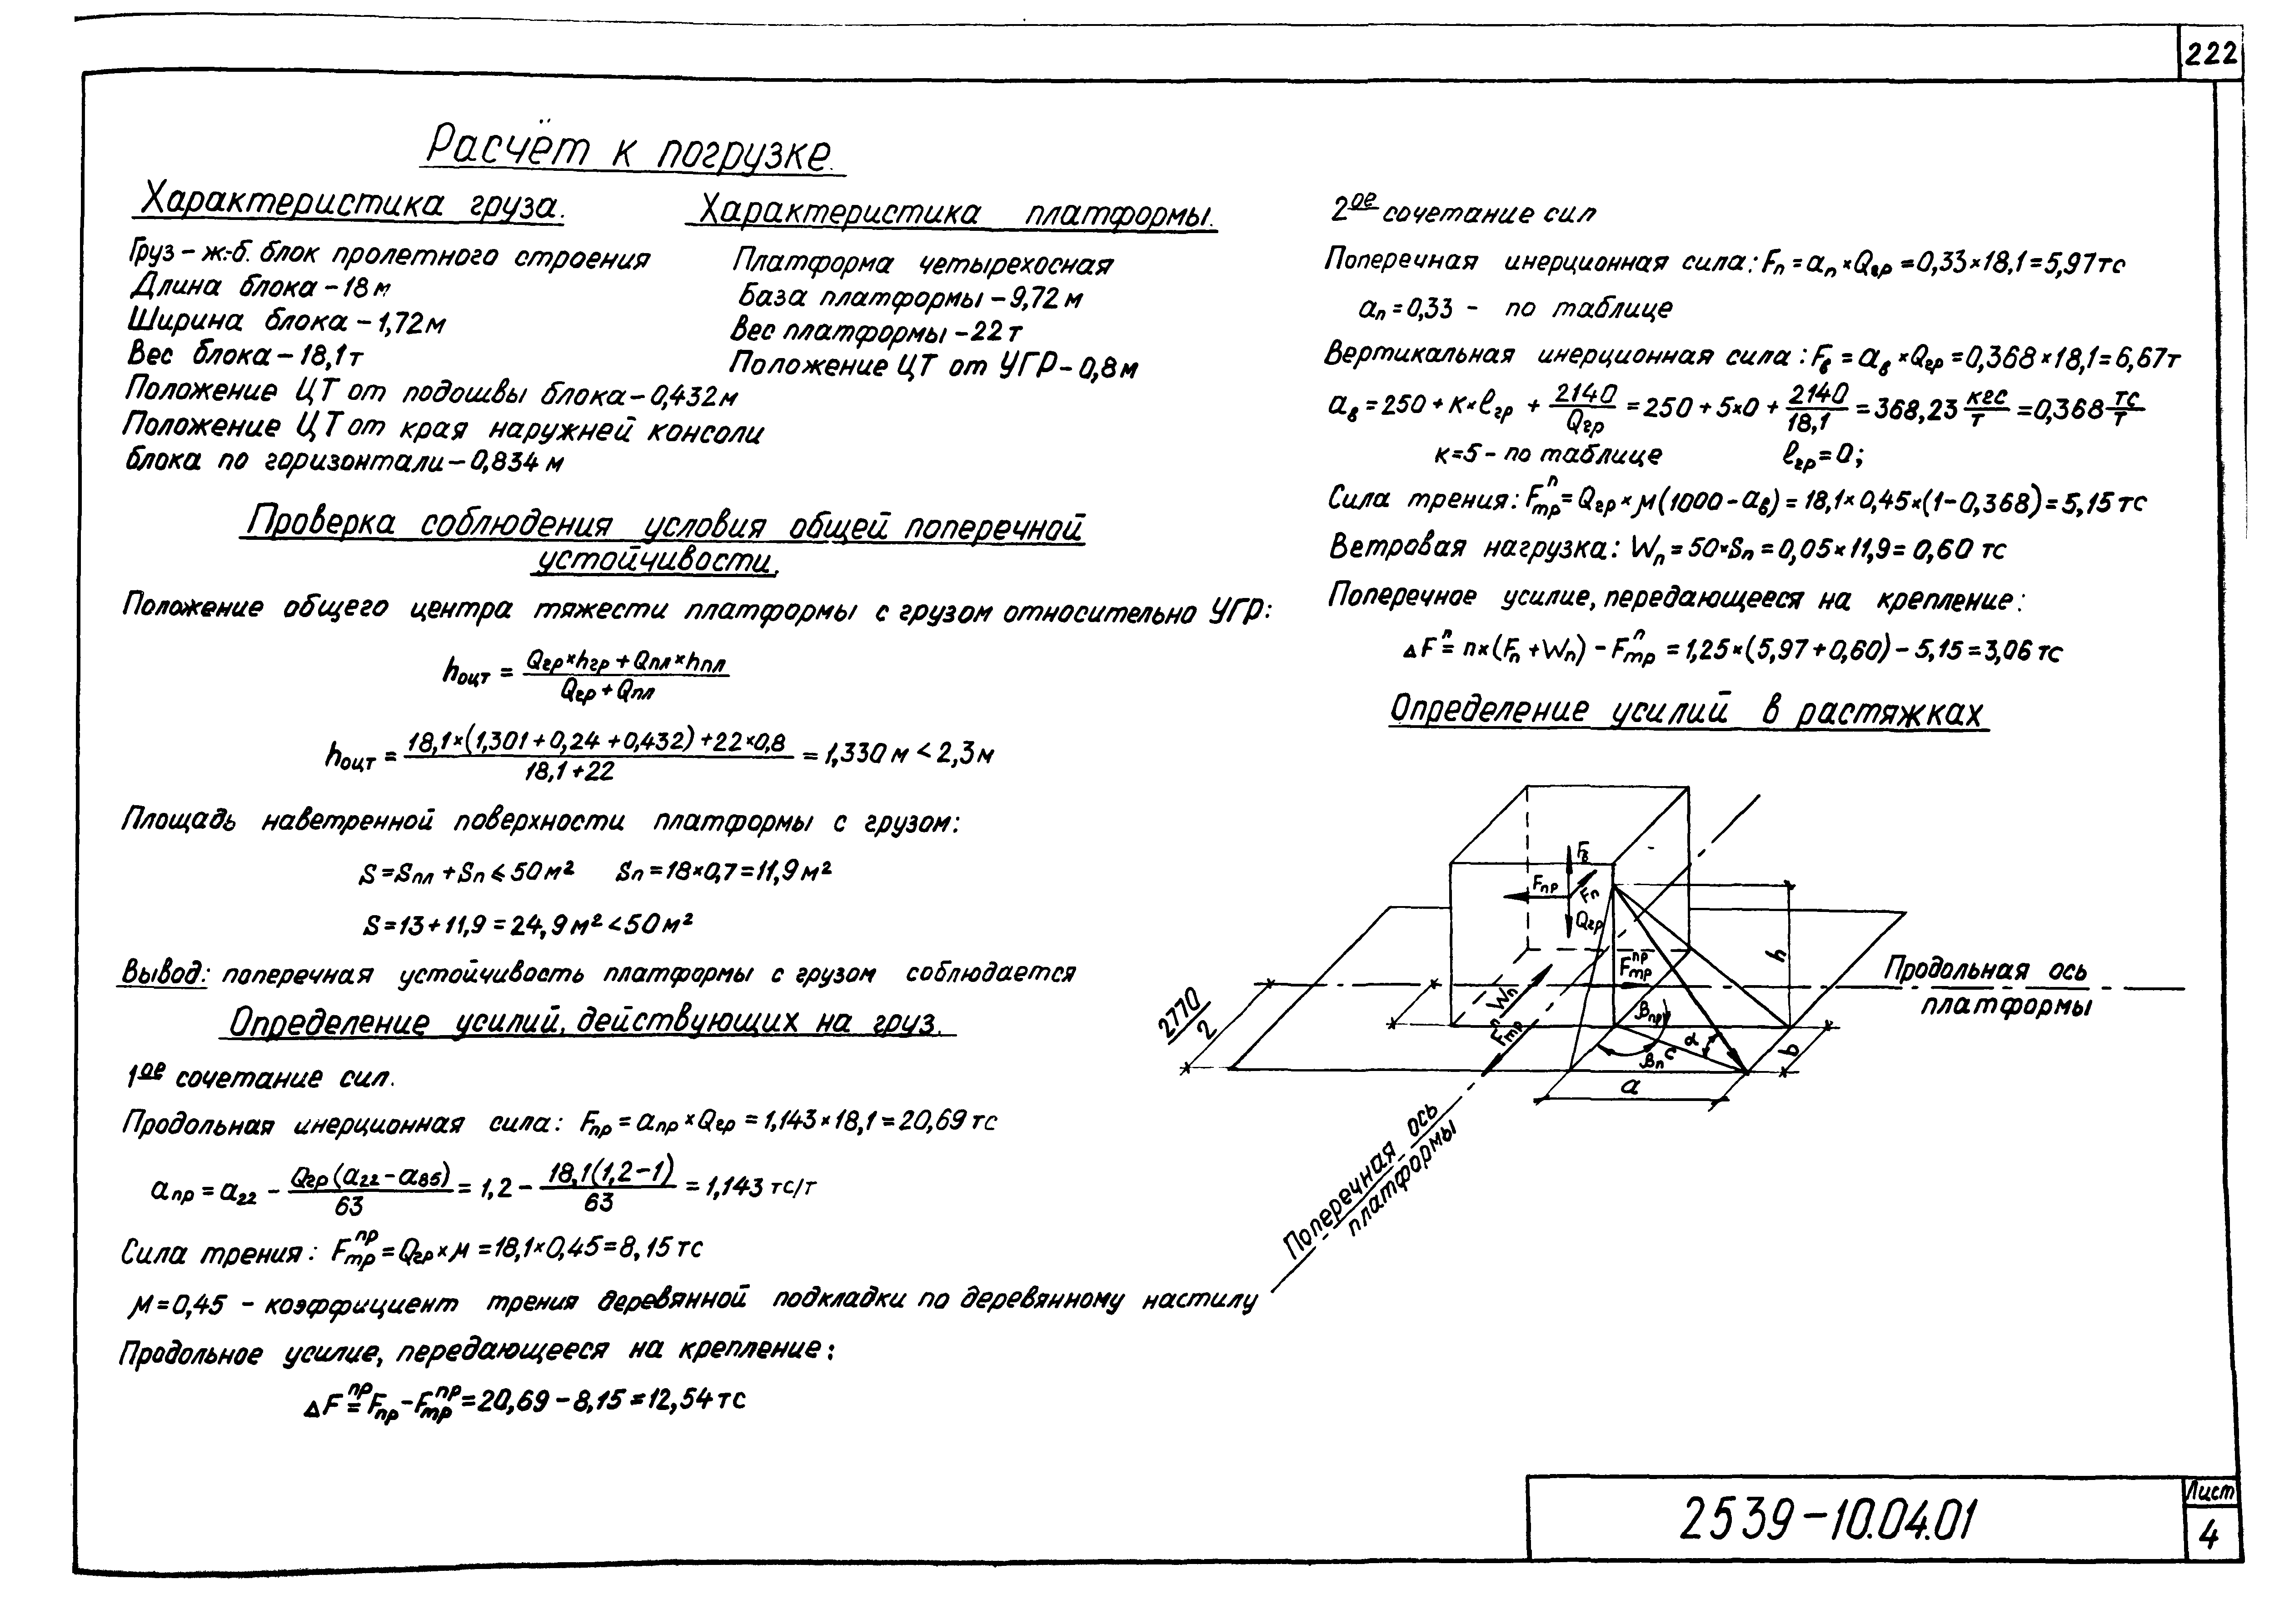 222
Расчёт к погрузке.
Характеристика груза.
Груз – ж.-б. блок пролетного строения
Длина блока – 18 м
Ширина блока – 1,72 м
Вес блока – 18,1 т
Положение ЦТ от подошвы блока – 0,432 м
Положение ЦТ от края наружней консоли
блока по горизонтали – 0,834 м
Характеристика платформы.
Платформа четырехосная
База платформы – 9,72 м
Вес платформы – 22 т
Положение ЦТ от УГР – 0,8 м
Проверка соблюдения условия общей поперечной
устойчивости.
Положение общего центра тяжести платформы с грузом относительно УГР:
hоцт = (Qгр × hгр + Qпл × hпл) / (Qгр + Qпл)
hоцт = (18,1 × (1,301 + 0,24 + 0,432) + 22 × 0,8) / (18,1 + 22) = 1,330 м < 2,3 м
Площадь наветренной поверхности платформы с грузом:
S = Sпл + Sп ⩽ 50 м² Sп = 18 × 0,7 = 11,9 м²
S = 13 + 11,9 = 24,9 м² < 50 м²
Вывод: поперечная устойчивость платформы с грузом соблюдается
Определение усилий, действующих на груз.
1ое сочетание сил.
Продольная инерционная сила: Fпр = aпр × Qгр = 1,143 × 18,1 = 20,69 тс
aпр = a22 – Qгр (a22 – a86) / 63 = 1,2 – 18,1 (1,2 – 1) / 63 = 1,143 тс/т
Сила трения: Fтрпр = Qгр × м = 18,1 × 0,45 = 8,15 тс
м = 0,45 – коэффициент трения деревянной подкладки по деревянному настилу
Продольное усилие, передающееся на крепление:
ΔFпр = Fпр – Fтрпр = 20,69 – 8,15 = 12,54 тс
2ое сочетание сил
Поперечная инерционная сила: Fп = aп × Qгр = 0,33 × 18,1 = 5,97 тс
aп = 0,33 – по таблице
Вертикальная инерционная сила: Fв = aв × Qгр = 0,368 × 18,1 = 6,67 т
aв = 250 + к × ℓгр + 2140 / Qгр = 250 + 5 × 0 + 2140 / 18,1 = 368,23 кгс/т = 0,368 тс/т
к = 5 – по таблице ℓгр = 0;
Сила трения: Fтрп = Qгр × м (1000 – aв) = 18,1 × 0,45 × (1 – 0,368) = 5,15 тс
Ветровая нагрузка: Wп = 50 × Sп = 0,05 × 11,9 = 0,60 тс
Поперечное усилие, передающееся на крепление:
ΔFп = n × (Fп + Wп) – Fтрп = 1,25 × (5,97 + 0,60) – 5,15 = 3,06 тс
Определение усилий в растяжках
Fв
Fпр
Fп
Qгр
Fтрпр
h
Продольная ось
платформы
2770/2
Wп
Fтрп
βпр
α
βп
c
b
a
Поперечная ось
платформы
2539-10.04.01
Лист
4